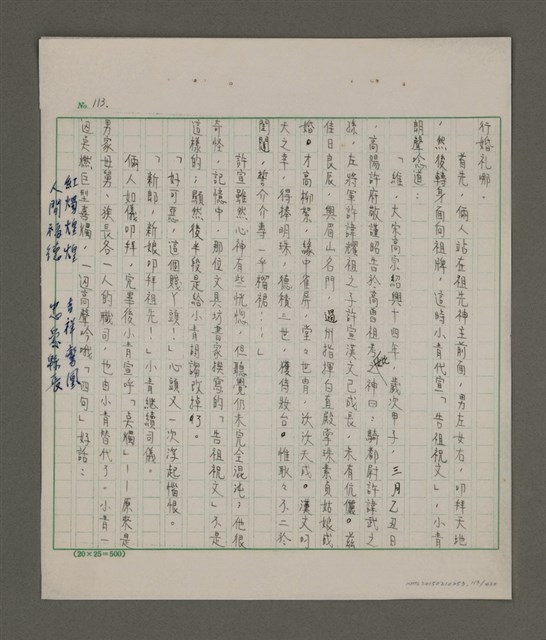 No. 113.
行婚礼哪。
首先，倆人站在祖先神主前面，男左女右，叩拜天地
，然後轉身面向祖牌，這時小青代宣「告祖祝文」，小青
朗聲唸道：
「維，大宋高宗紹興十四年，歲次甲子，三月乙丑日
，高陽許府敬謹昭告於高曾祖考妣神曰：騎都尉許諱武之
孫，左將軍許諱耀祖之子許宣漢文已成長，未有伉儷。茲
佳日良辰，與眉山名門，過州指揮白真殿掌珠素貞姑娘成
婚。才高柳絮，緣中雀屏，堂々世胄，沃沃天成。漢文何
大之幸，得捧明珠，德積三世，獲侍妝台。惟敢々不二於
閨閫，誓介介專一乎榴裙……」
許宣雖然心神有些恍惚，但聽覺仍未完全混沌；他很
奇怪，記憶中，那位文具坊書家撰寫的「告祖祝文」不是
這樣的；顯然後半段是給小青胡謅改掉了。
「好可惡，這個賤丫頭！」心頭又一次浮起惱恨。
「新郎，新娘叩拜祖先！」小青繼續司儀。
倆人如儀叩拜，完畢後小青宣呼「吳燭」——原來是
男家母舅、族長各一人的職司，也由小青替代了。小青一
邊吳燃巨型喜燭，一邊高聲吟哦「四句」好話：
紅燭煌煌　吉祥鸞凰
人間福德　恩愛綿長
(20×25=500)